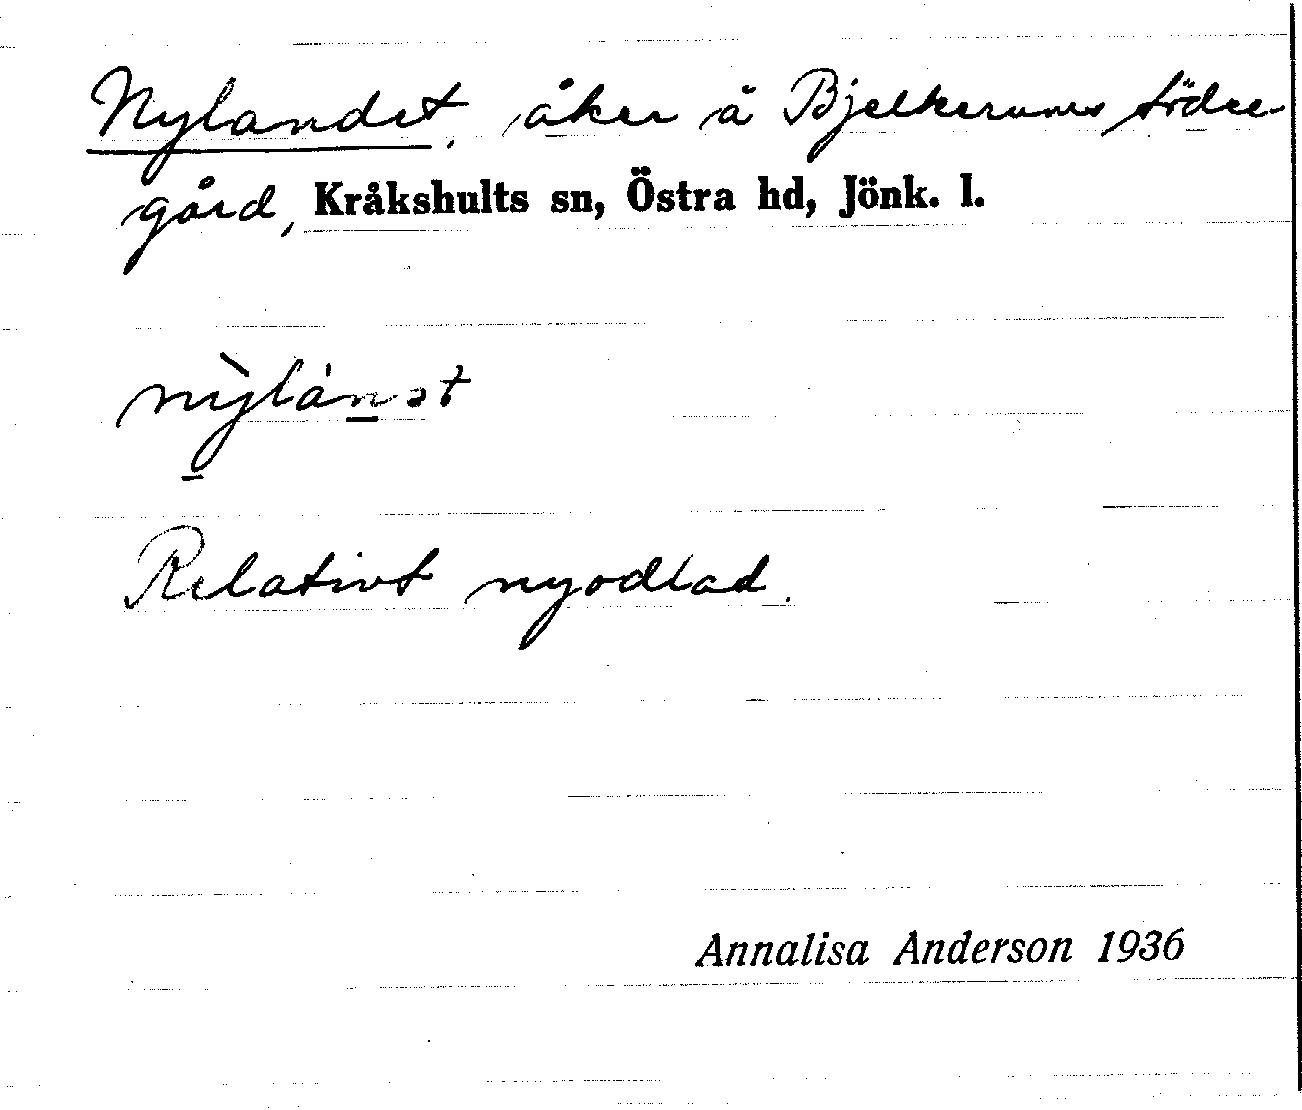 Nylandet, åker å Bjelkerums södre-
gård, Kråkshults sn, Östra hd, Jönk. l.
nỳlánət
Relativt nyodlad.
Annalisa Anderson 1936